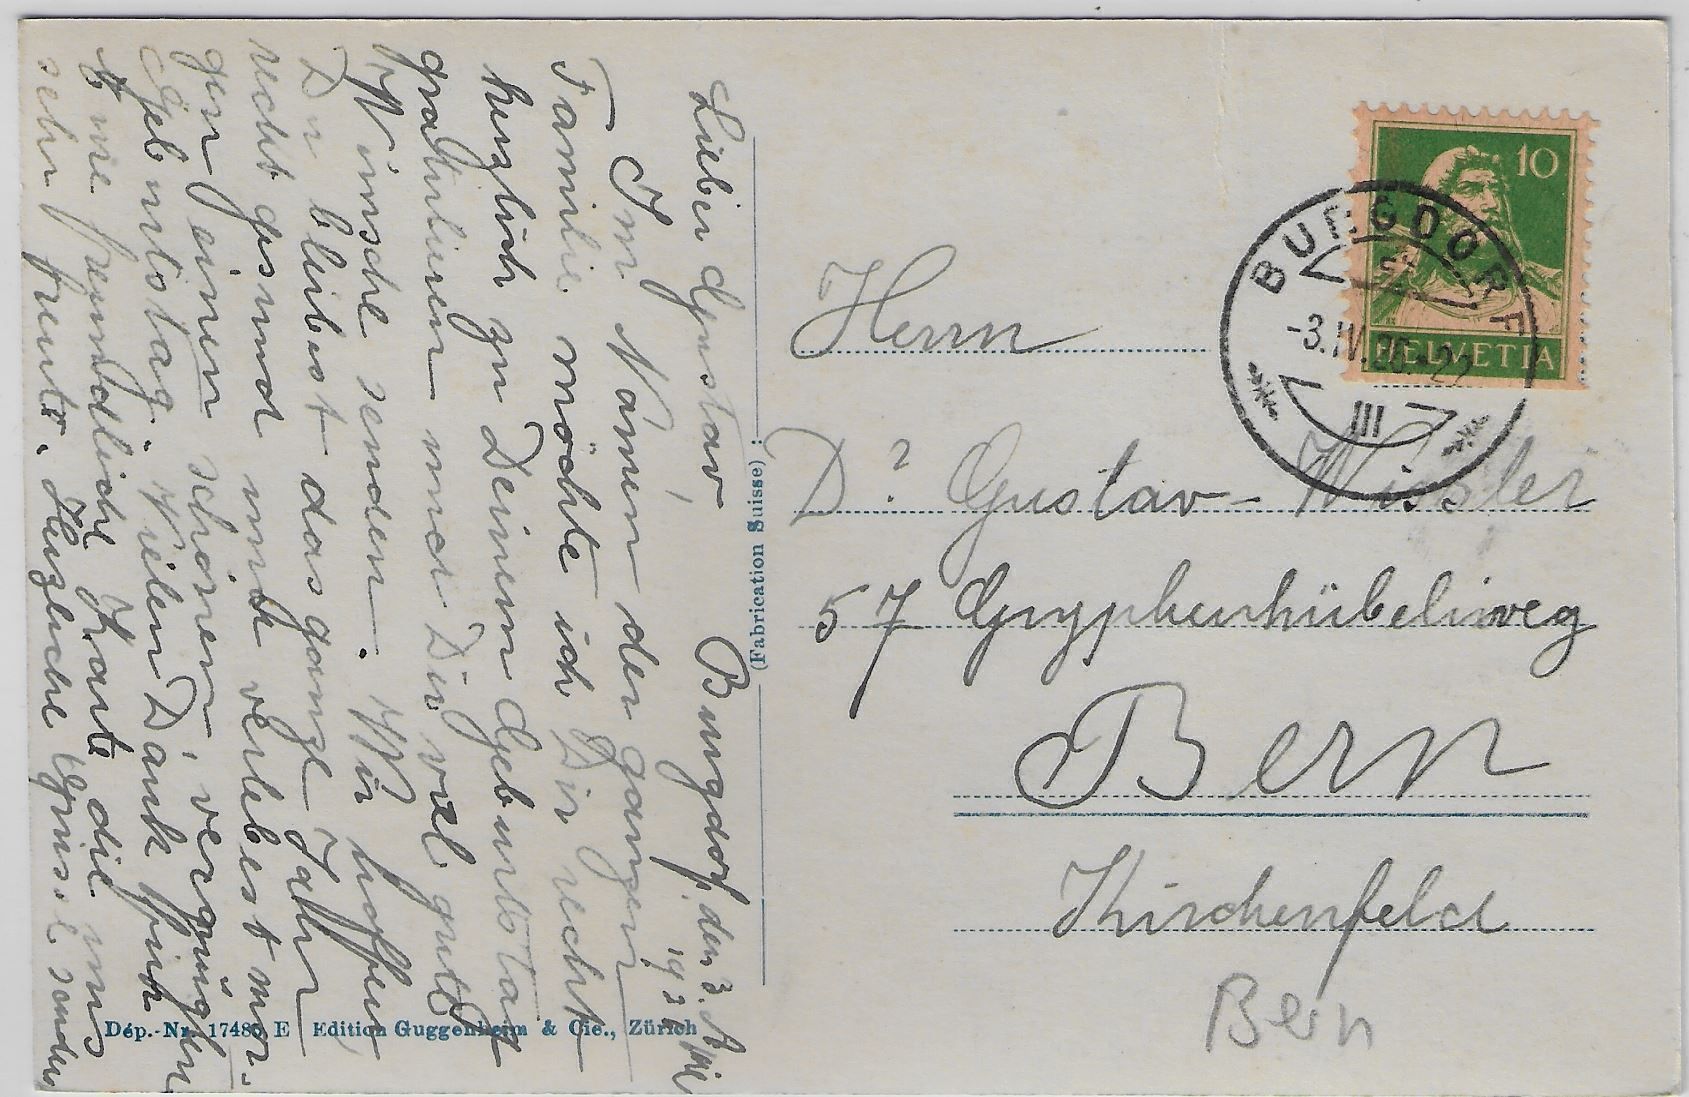 Burgdorf, den 3. April
Lieber Gustav,
Im Namen der ganzen
Familie möchte ich Dir recht
herzlich zu Deinem Geburtstag
gratulieren und Dir viel gute
Wünsche senden. Wir hoffen
Du bleibst das ganze Jahr
recht gesund und verlebest mor-
gen einen schönen, vergnügten
Geburtstag. Vielen Dank für
freundliche Karte die uns
sehr freute. Herzliche Grüsse senden
(Fabrication Suisse)
Dép.-Nr. 17485 E Edition Guggenheim & Cie., Zürich
10
HELVETIA
BURGDORF
-3.IV.26-22
III
Herrn
Dr Gustav Wissler
57 Gryphenhübeliweg
Bern
Kirchenfeld
Bern